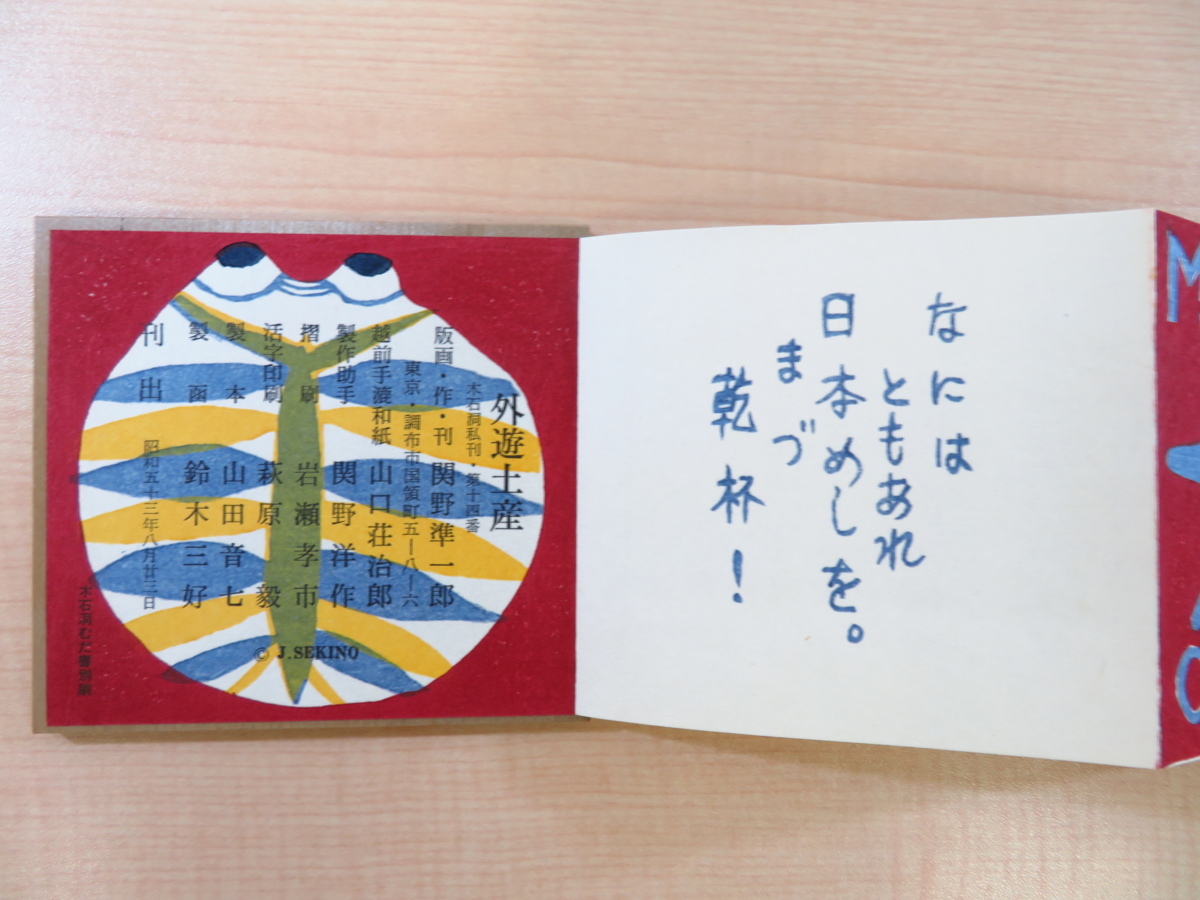 なには
ともあれ
日本めしを。
まづ
乾杯！
外遊土産
木石洞私刊・第十四番
版画・作・刊 関野準一郎
東京・調布市国領町五ー八ー六
越前手漉和紙 山口荘治郎
製作助手 関野洋作
摺刷 岩瀬孝市
活字印刷 萩原毅
製本 山田音七
製函 鈴木三好
刊出 昭和五十三年八月廿三日
© J. SEKINO
M